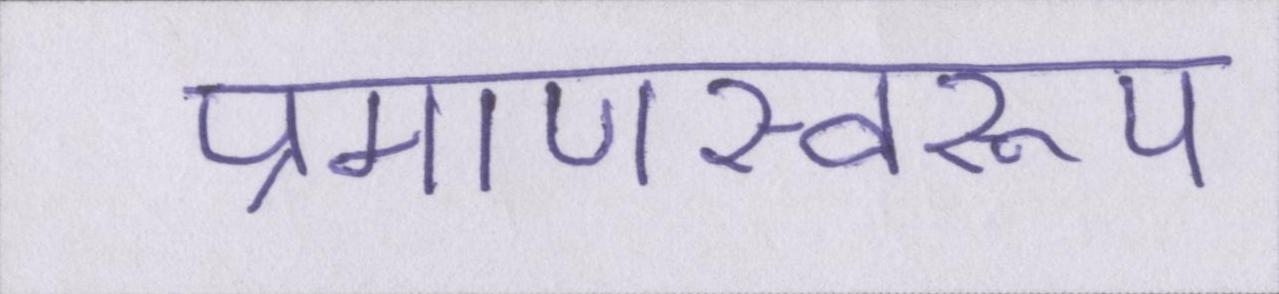 प्रमाणस्वरूप